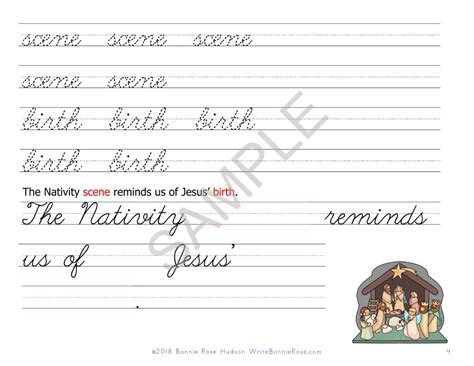 scene scene scene
scene scene
birth birth birth
birth birth
The Nativity scene reminds us of Jesus’ birth.
The Nativity reminds
us of Jesus’
.
SAMPLE
©2018 Bonnie Rose Hudson WriteBonnieRose.com 4